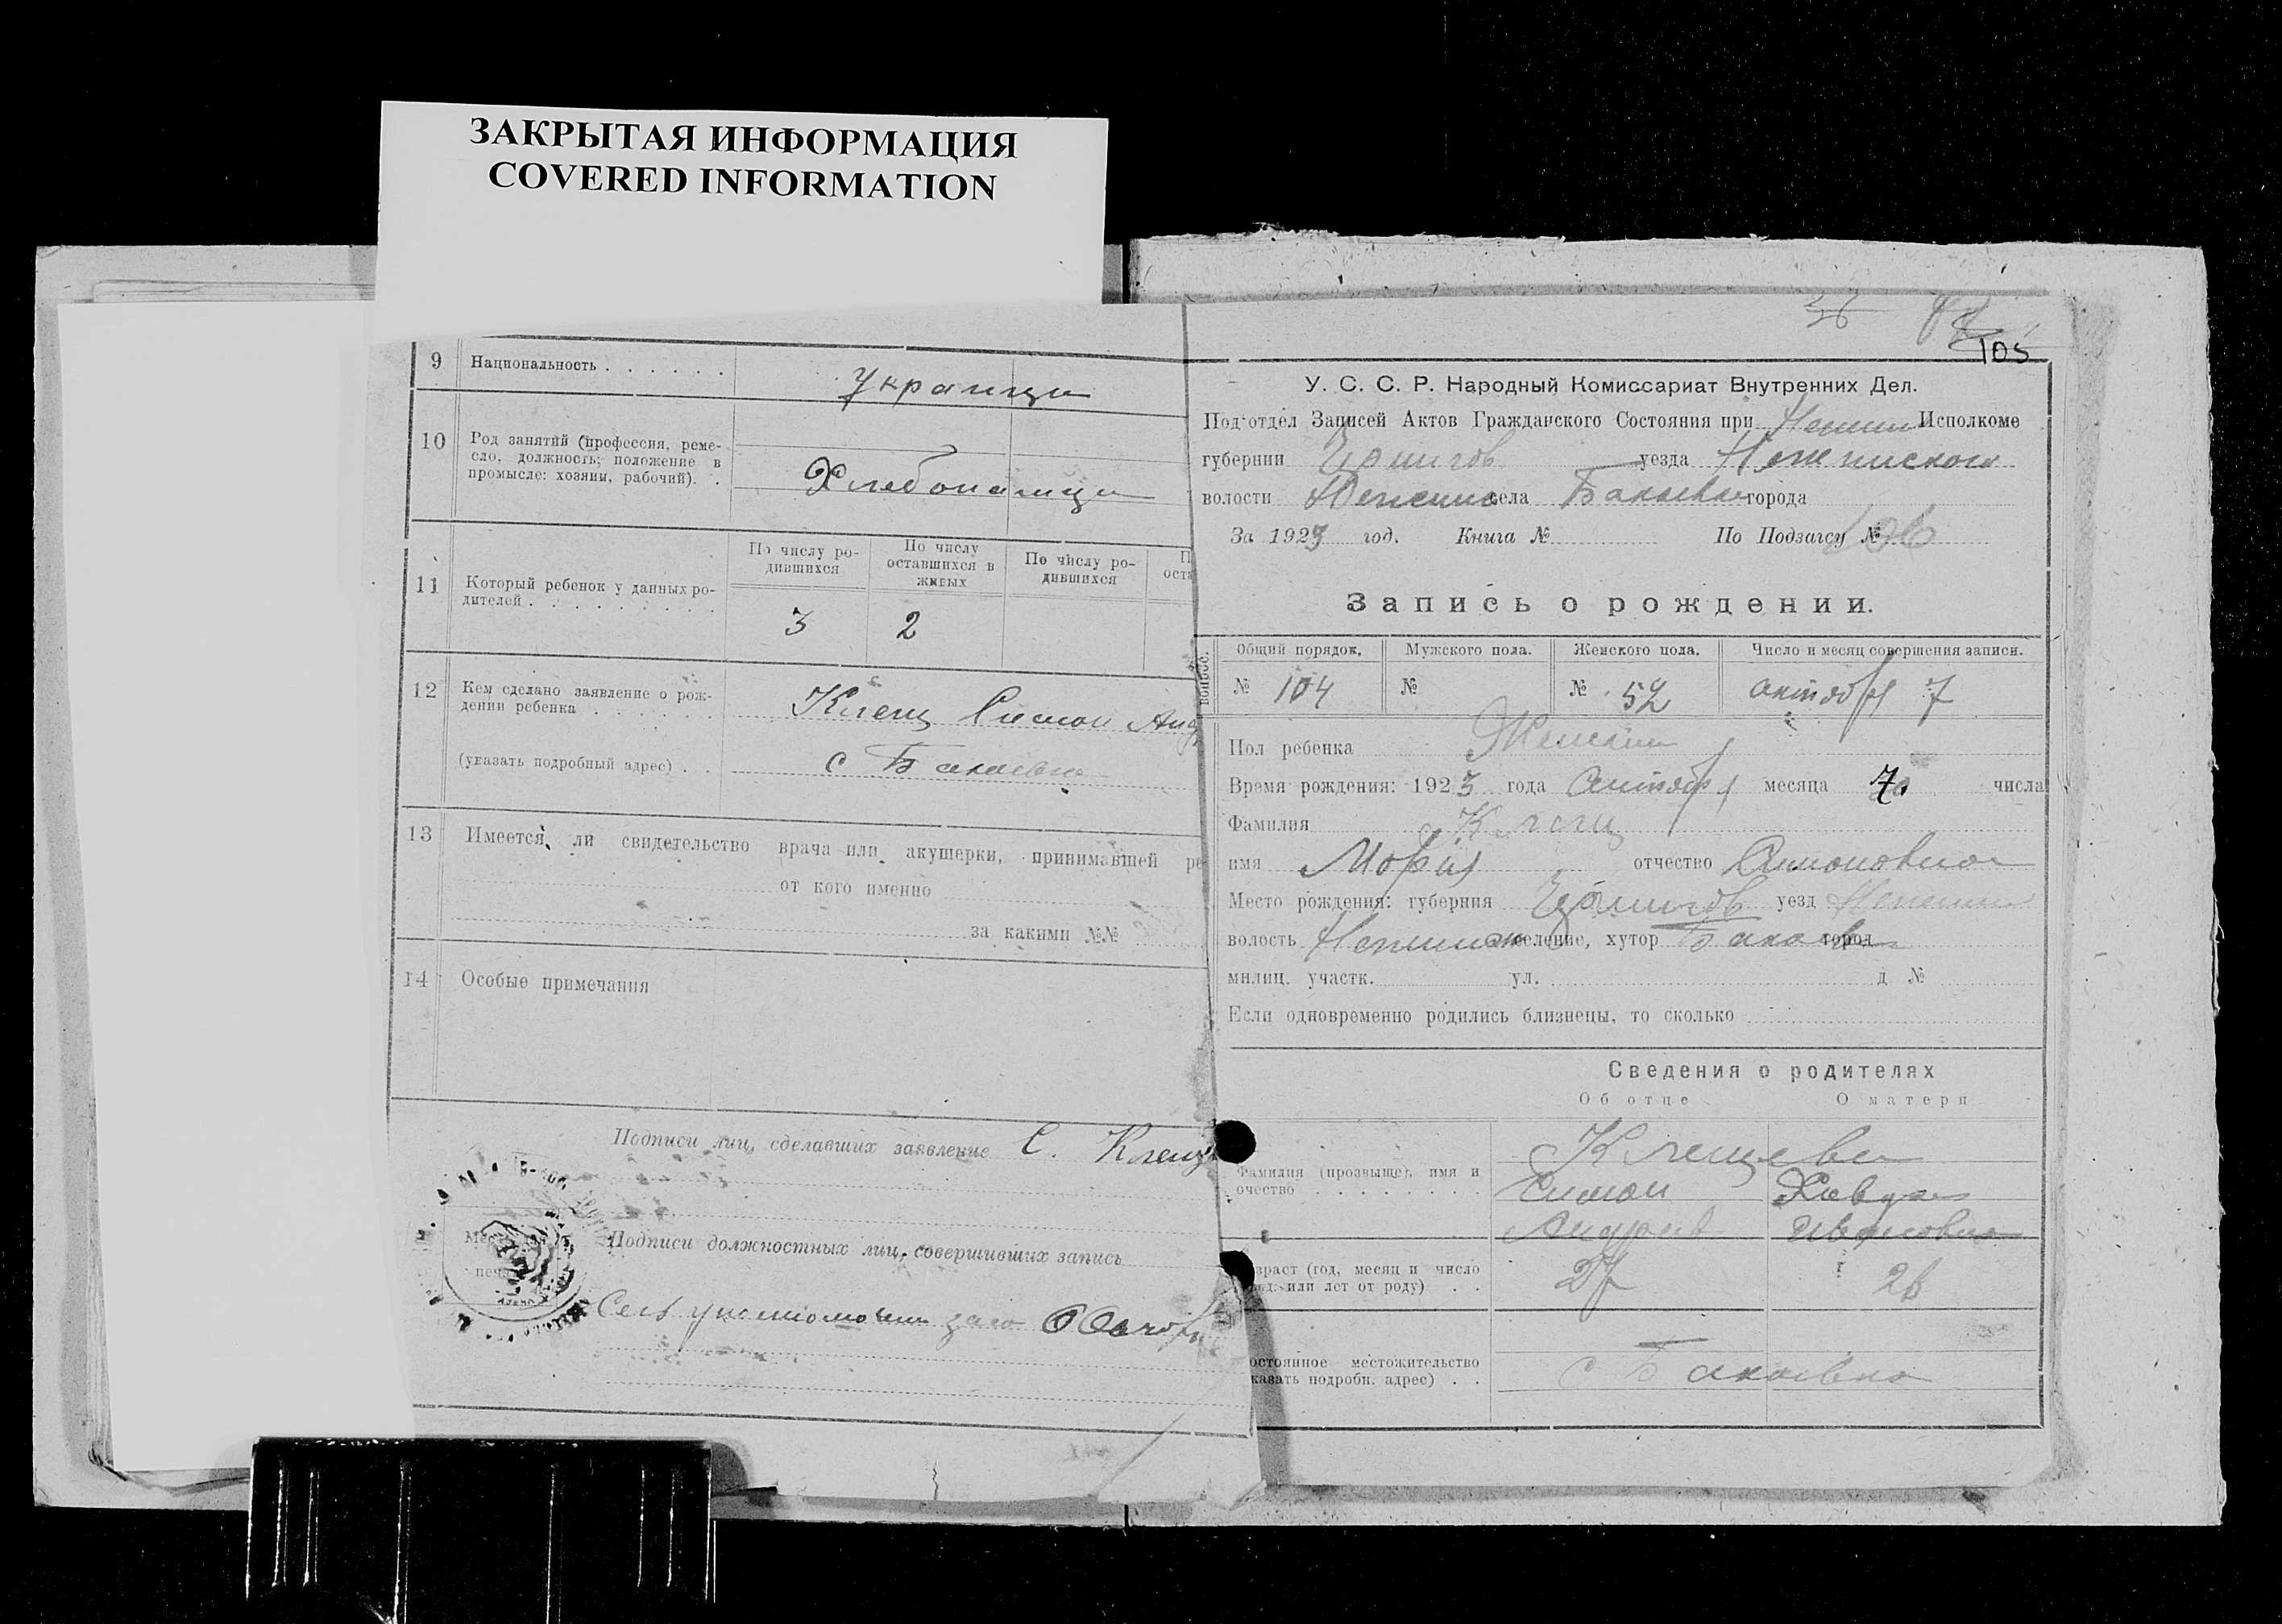 ЗАКРЫТАЯ ИНФОРМАЦИЯ
COVERED INFORMATION
9 Национальность . . . . . .
Украинци
10 Род занятий (профессия, реме-
сло, должность; положение в
промысле: хозяин, рабочий). .
Хлебопашци
11 Который ребенок у данных ро-
дителей . . . . . . . . .
По числу ро-
дившихся
По числу
оставшихся в
живых
По числу ро-
дившихся
П
оста
3 2
12 Кем сделано заявление о рож-
дении ребенка . . . . . .
Клещ Симон Анд
(указать подробный адрес) . .
с Бакаевка
13 Имеется ли свидетельство врача или акушерки, принимавшей ре
от кого именно
за какими №№
14 Особые примечания
Подписи лиц, сделавших заявление С. Клещ
Подписи должностных лиц, совершивших запись
105
У. С. С. Р. Народный Комиссариат Внутренних Дел.
Под'отдел Записей Актов Гражданского Состояния при Нежин Исполкоме
губернии Чернигов уезда Неженского
волости села Бакаевка города
За 1923 год. Книга № По Подзагсу № 106
Запись о рождении.
вопрос.
Общий порядок. Мужского пола. Женского пола. Число и месяц совершения записи.
№ 104 № № 52 октября 7
Пол ребенка Женский
Время рождения: 1923 года Октября месяца 7 числа
Фамилия Клещ
имя Мория отчество Симоновна
Место рождения: губерния Чернигов уезд Нежин
волость селение, хутор Бакаевка город
милиц. участк. ул. д №
Если одновременно родились близнецы, то сколько
Сведения о родителях
Об отце О матери
Фамилия (прозвище), имя и
очество . . . . . . . .
Клещеви
Симон
Андреев Ивановна
зраст (год, месяц и число
или лет от роду) . .
27 26
остоянное местожительство
казать подробн. адрес) . .
с Бакаевка